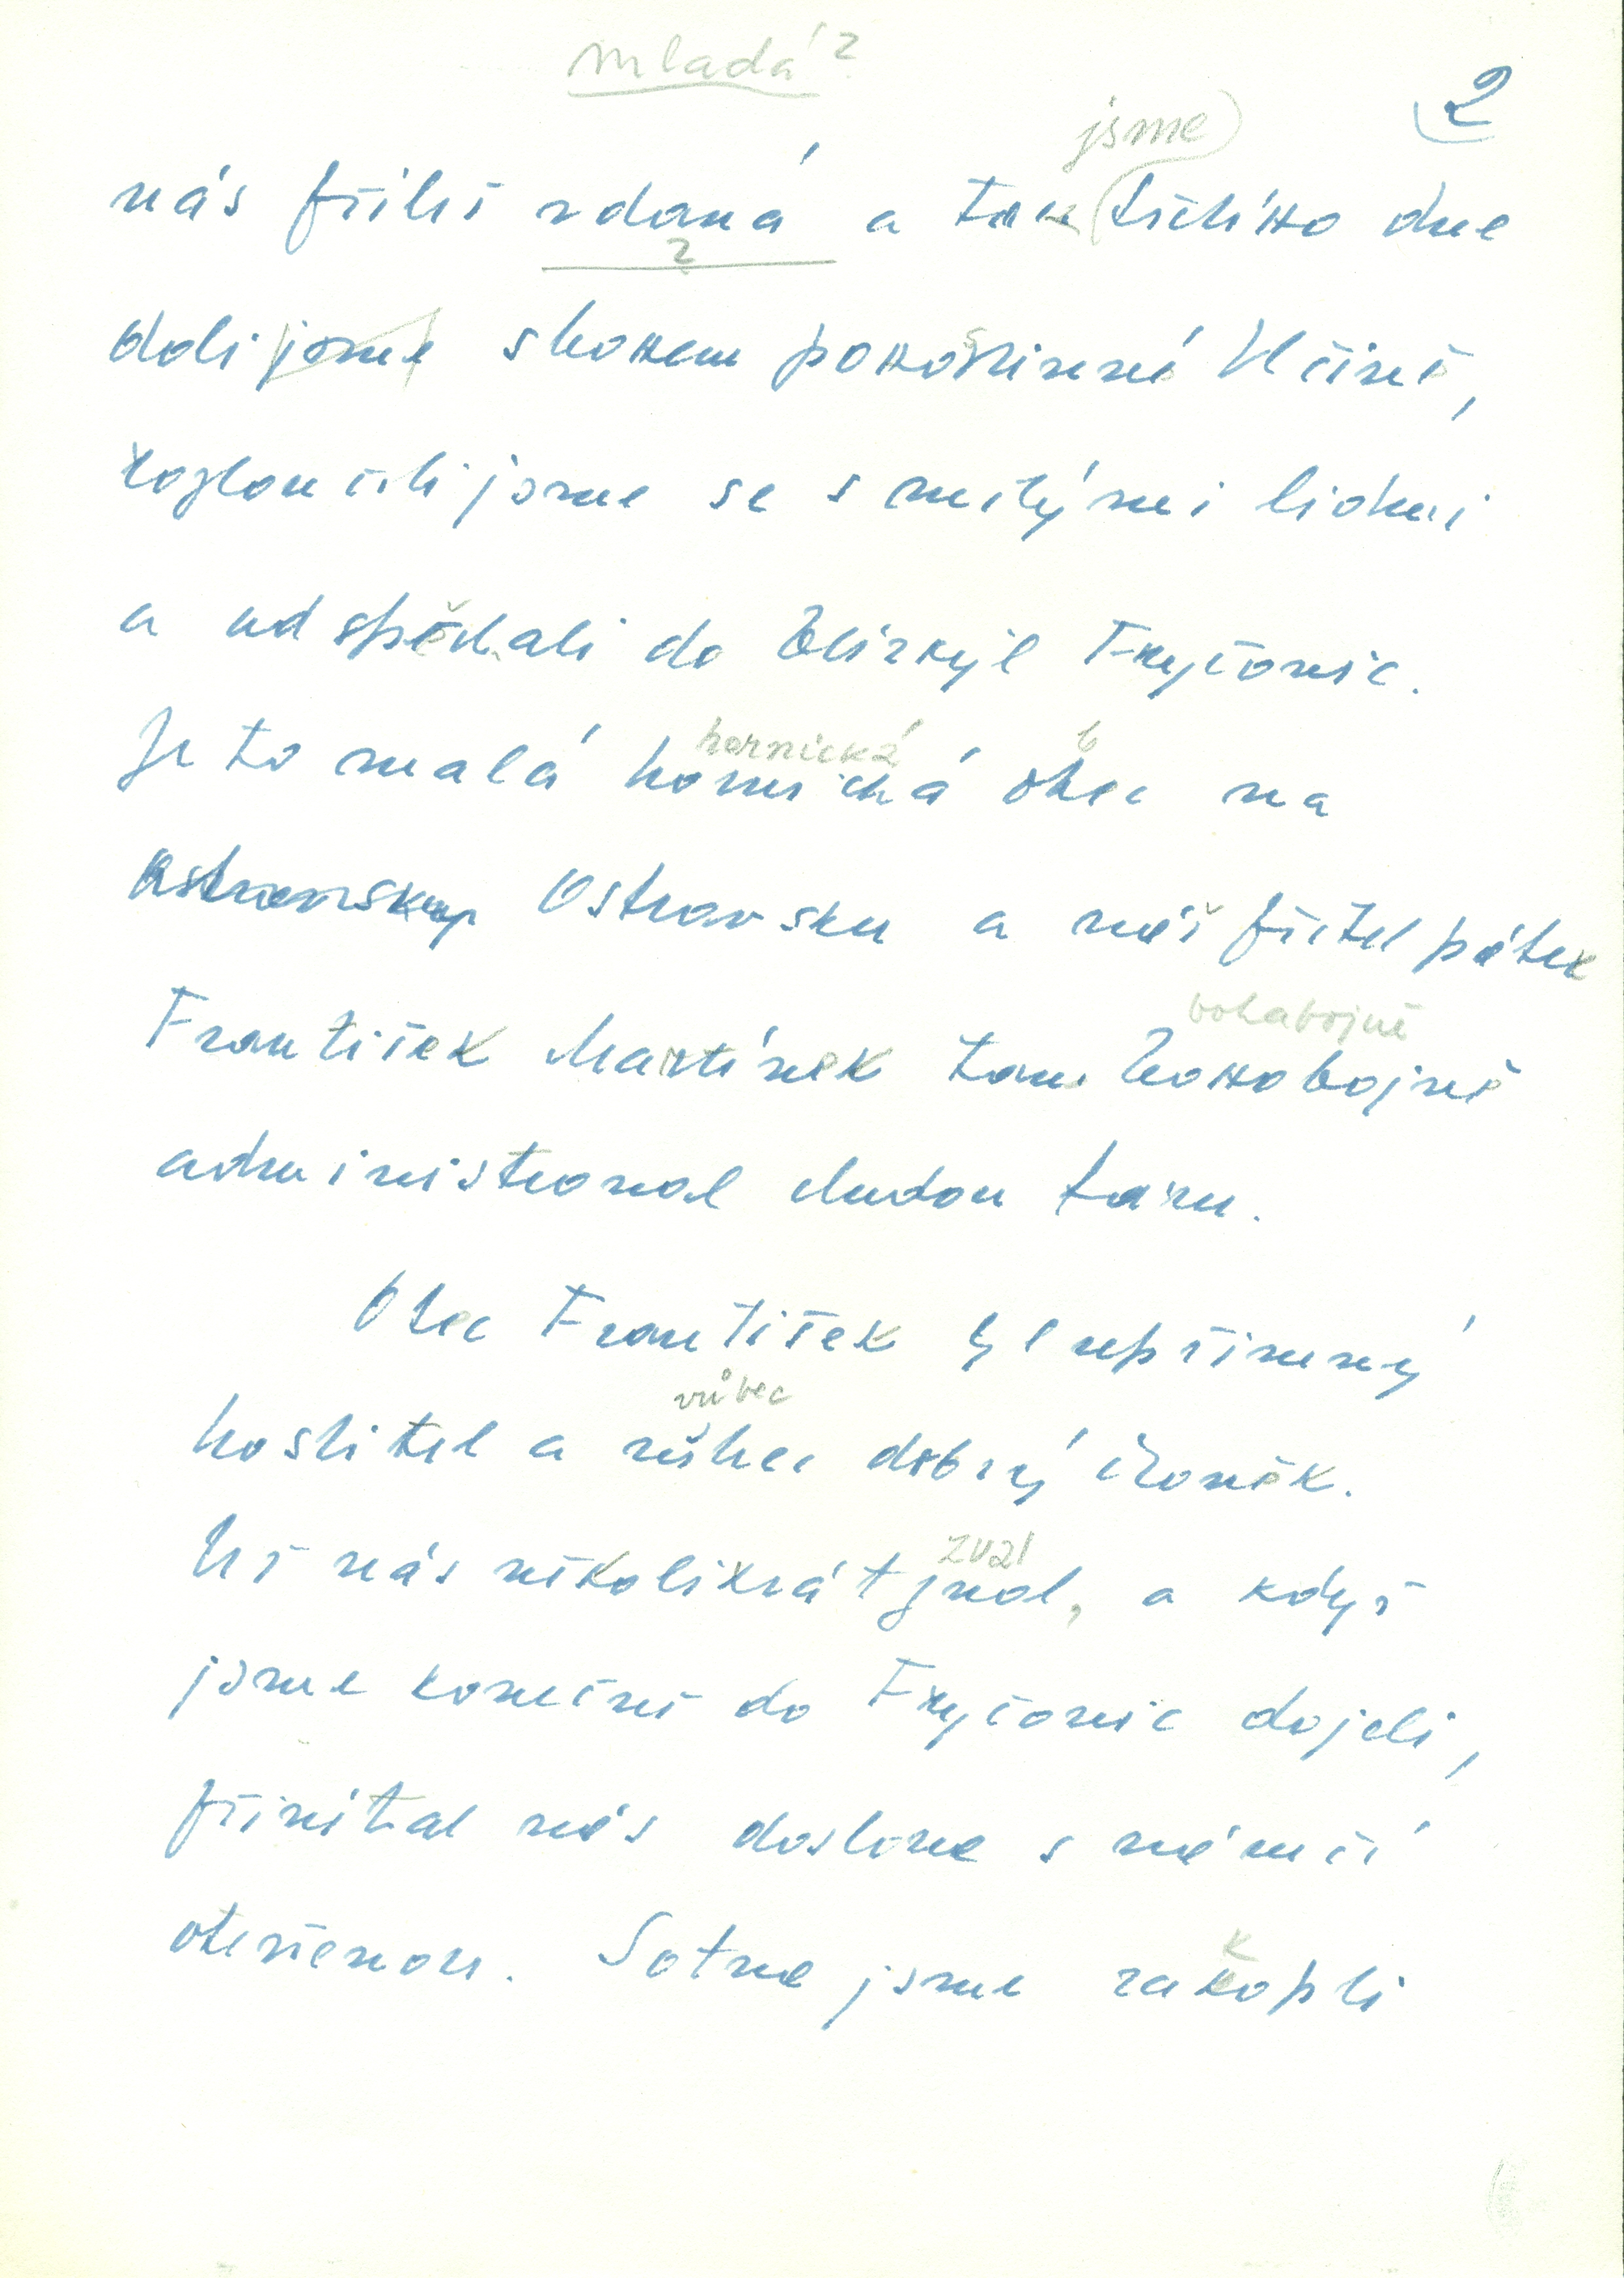 mladá?
2
jsme
nás příliš vdaná a tak třetího dne
?
dali jsme sbohem pohostinné Vlčině,
rozloučili jsme se s milými lidmi
a odspěchali do blízkých Fryčovic.
hornická b
Je to malá hornická obec na
Ostravsku a náš přítel páter
bohabojně
František Martínek tam bohabojně
administroval chudou faru.
Otec František byl upřímný
vůbec
hostitel a vůbec dobrý člověk.
zval
Už nás několikrát zval, a když
jsme konečně do Fryčovic dojeli,
přivítal nás doslova s náručí
k
otevřenou. Sotva jsme zaklopli